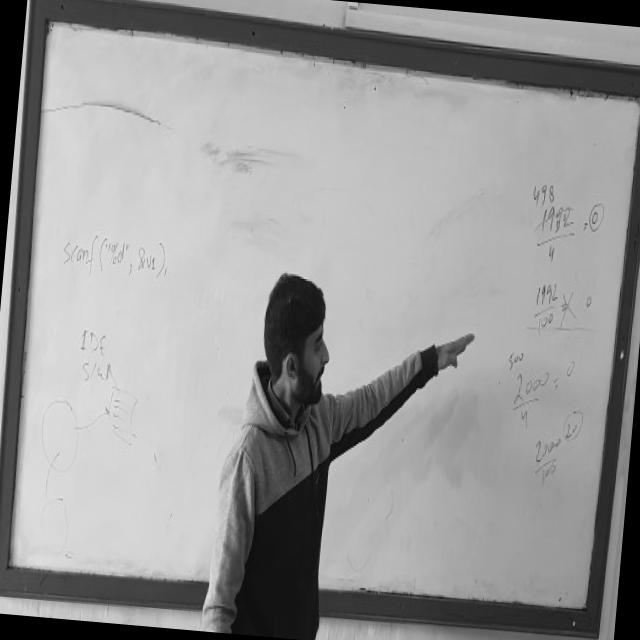 scanf("%d", &v1),
IDE
498
1992 = 0
4
1992
100 0
500
2000 = 0
4
2000
100